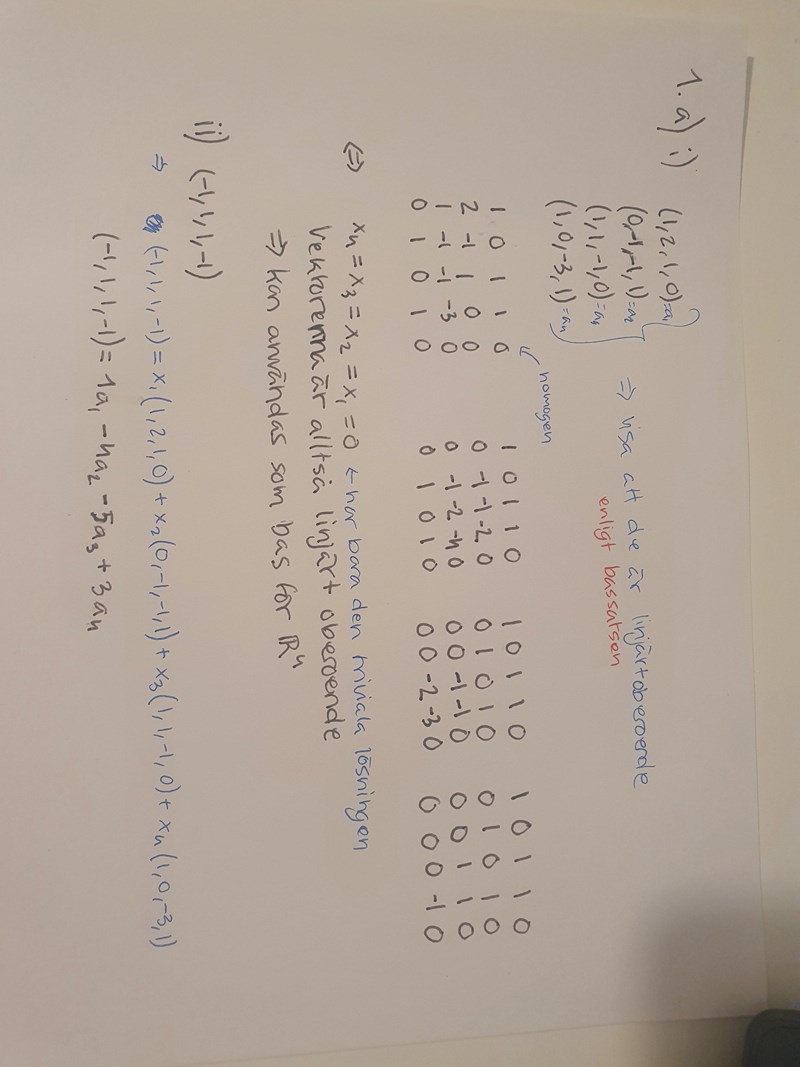 1. a) i) (1,2,1,0)=a₁
(0,-1,-1,1)=a₂ ⇒ visa att de är linjärt oberoende
(1,1,-1,0)=a₃ enligt bassatsen
(1,0,-3,1)=a₄
homogen
1 0 1 1 0 1 0 1 1 0 1 0 1 1 0 1 0 1 1 0
2 -1 1 0 0 0 -1 -1 -2 0 0 1 0 1 0 0 1 0 1 0
1 -1 -1 -3 0 0 -1 -2 -4 0 0 0 -1 -1 0 0 0 1 1 0
0 1 0 1 0 0 1 0 1 0 0 0 -2 -3 0 0 0 0 -1 0
⇔ x₄=x₃=x₂=x₁=0 ← har bara den triviala lösningen
Vektorerna är alltså linjärt oberoende
⇒ kan användas som bas för ℝ⁴
ii) (-1,1,1,-1)
⇒ (-1,1,1,-1)=x₁(1,2,1,0)+x₂(0,-1,-1,1)+x₃(1,1,-1,0)+x₄(1,0,-3,1)
(-1,1,1,-1)=1a₁-4a₂-5a₃+3a₄